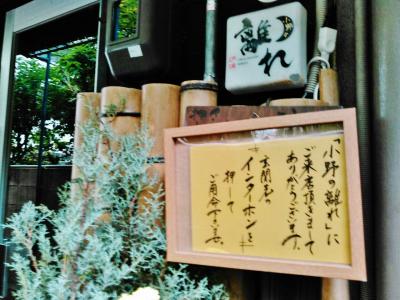 小野
離れ
「小野の離れ」に
ご来店頂きまして
ありがとうございます。
玄関左の
インターホンを
押して
ご用命下さいませ。